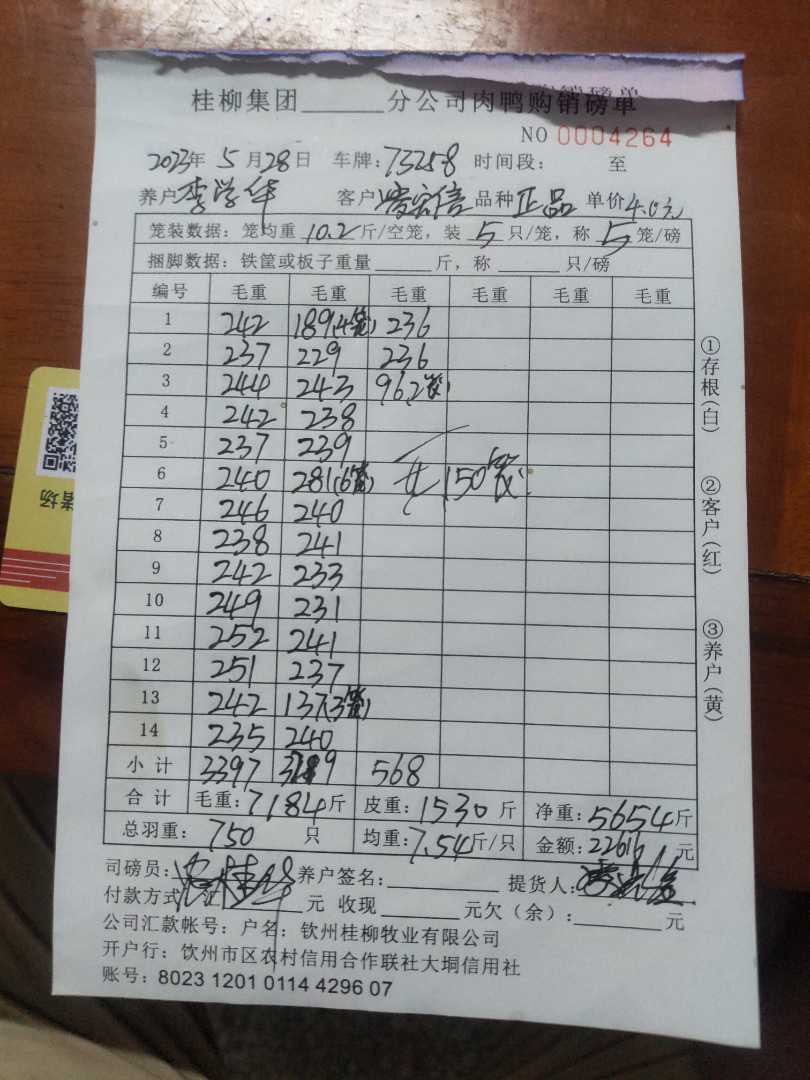 桂柳集团______分公司肉鸭购销磅单
NO 0004264
2023年 5 月 28 日 车牌: 73258 时间段: 至
养户 李学华 客户 信 品种 正品 单价 4.0元
笼装数据: 笼均重 10.2 斤/空笼, 装 5 只/笼, 称 5 笼/磅
捆脚数据: 铁筐或板子重量______斤, 称______只/磅
编号 毛重 毛重 毛重 毛重 毛重 毛重
1 242 189(4笼) 236
2 237 229 236
3 244 243 96(2笼)
4 242 238
5 237 239
6 240 281(6笼) 150笼
7 246 240
8 238 241
9 242 233
10 249 231
11 252 241
12 251 237
13 242 137(3笼)
14 235 240
小计 3397 568
合计 毛重: 7184斤 皮重: 1530 斤 净重: 5654斤
总羽重: 750 只 均重: 7.54斤/只 金额: 22616 元
司磅员: 养户签名:________ 提货人:
付款方式: 元 收现______元欠(余):______元
公司汇款帐号: 户名: 钦州桂柳牧业有限公司
开户行: 钦州市区农村信用合作联社大垌信用社
账号: 8023 1201 0114 4296 07
①存根(白)
②客户(红)
③养户(黄)
者场